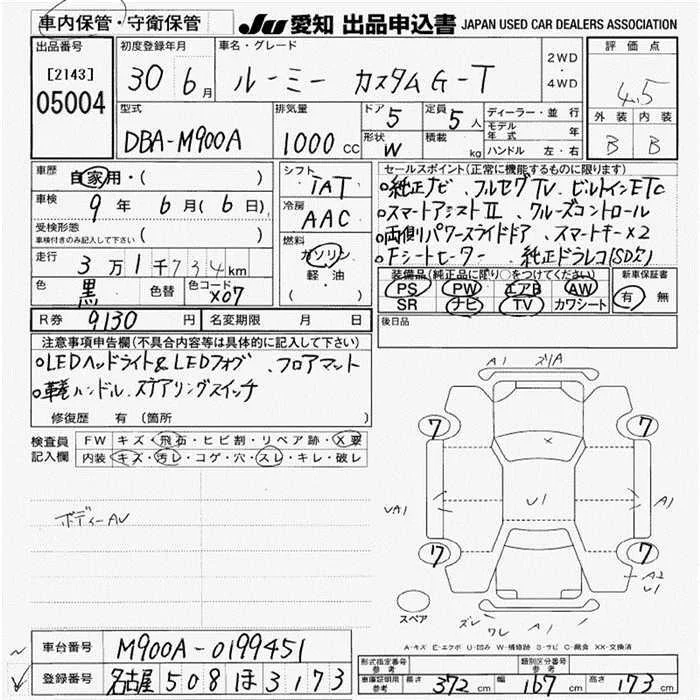 車内保管・守衛保管 JU 愛知 出品申込書 JAPAN USED CAR DEALERS ASSOCIATION
出品番号 初度登録年月 車名・グレード 評価点
[2143] 30 6月 ルーミー カスタムG-T 2WD・4WD 4.5
05004 外装 内装
型式 排気量 ドア 5 定員 5人 ディーラー・並行 B B
DBA-M900A 1000cc 形状 W 積載 kg モデル年式 年
ハンドル 左・右
車歴 自家用・( ) シフト セールスポイント(正常に機能するものに限ります)
車検 9年 6月(6日) IAT 純正ナビ、フルセグTV、ビルトインETC
受検形態 冷房 スマートアシストII、クルーズコントロール
車検付きのみ記入して下さい ( ) AAC 両側パワースライドドア、スマートキー×2
走行 3万1千734km 燃料 Fシートヒーター、純正ドラレコ(SD欠)
色 黒 色替 色コード X07 ガソリン 軽油 ( ) 装備品(純正品に限り○をつけてください) 新車保証書
PS PW エアB AW 有 無
SR ナビ TV カワシート
R券 9130円 名変期限 月 日 後日品
注意事項申告欄(不具合内容等は具体的に記入して下さい)
LEDヘッドライト&LEDフォグ、フロアマット
革巻ハンドル、ステアリングスイッチ
修復歴 有(箇所 )
検査員 FW キズ・飛石・ヒビ割・リペア跡・X要
記入欄 内装 キズ・汚レ・コゲ・穴・スレ・キレ・破レ
ボディーAU
A1 ズリA
7 7
×
UA1 U1 A1
7 7
A2
U1
スペア
ズレ ワレ A1
A-キズ E-エクボ U-凹み W-補修跡 S-サビ C-腐食 XX-交換済
車台番号 M900A-0199451
登録番号 名古屋 508 ほ 3173
形式指定番号 参考 類別区分番号 参考
車庫証明用 参考 長さ 372cm 幅 167cm 高さ 173cm